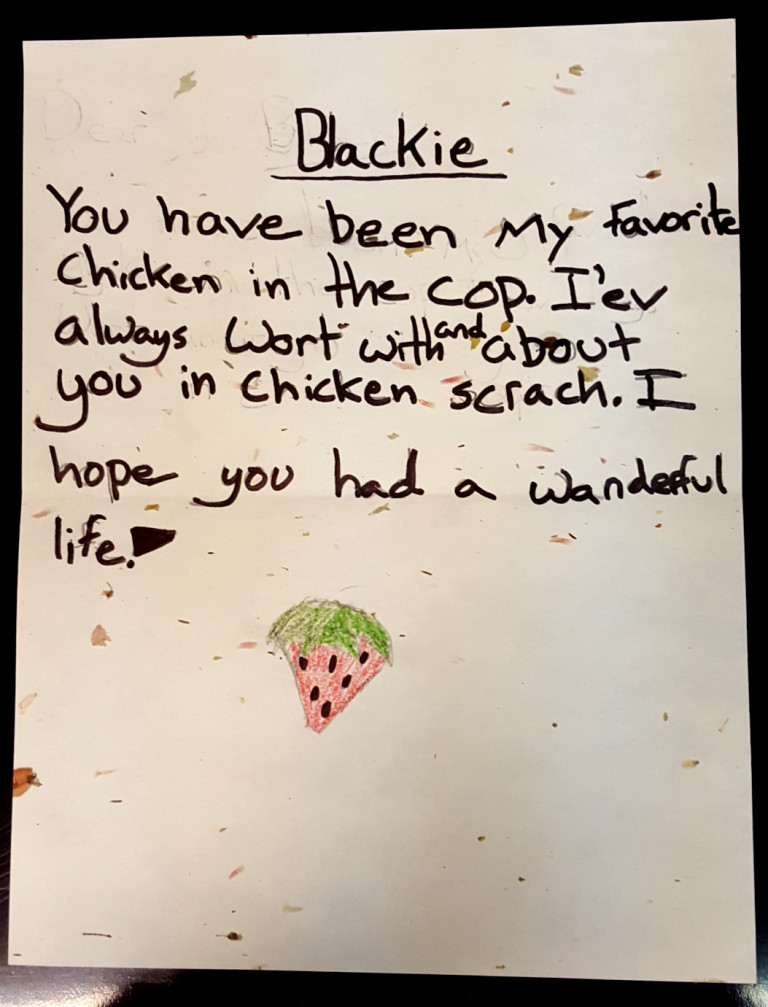 Blackie
You have been My favorite
Chicken in the cop. I'ev
always wort with and about
you in chicken scrach. I
hope you had a wanderful
life.